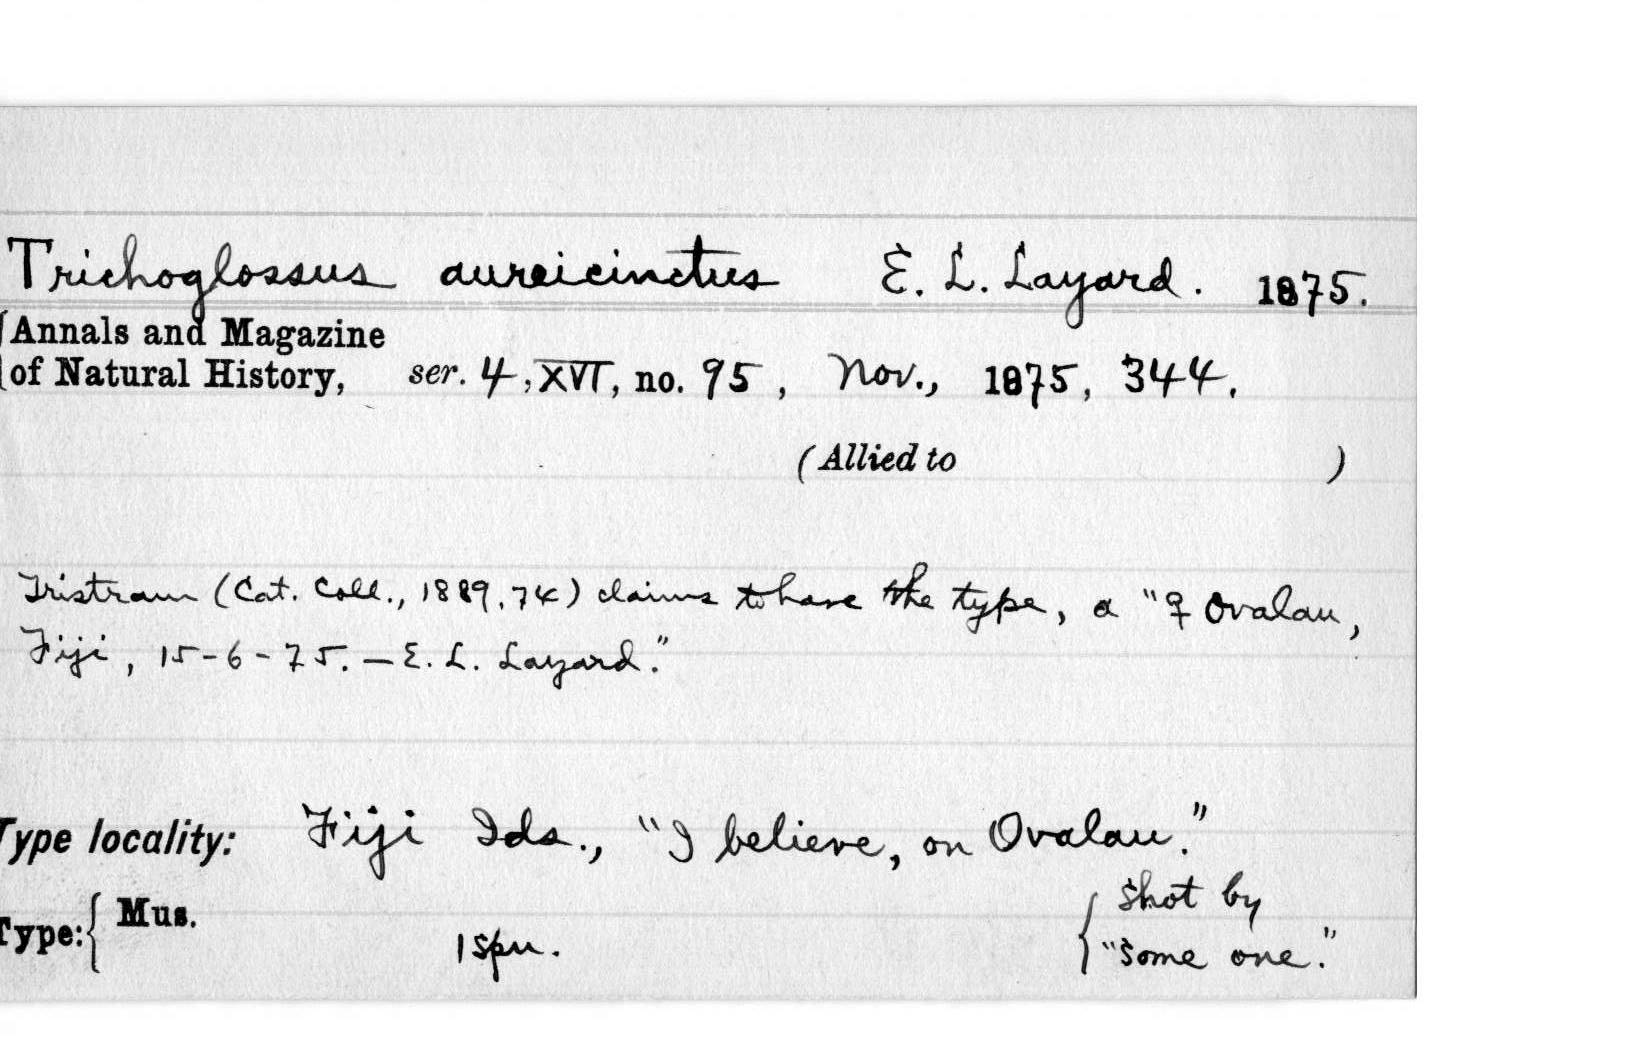 Trichoglossus aureicinctus E. L. Layard. 1875.
Annals and Magazine
of Natural History, ser. 4, XVI, no. 95, Nov., 1875, 344.
(Allied to )
Tristram (Cat. Coll., 1889, 74) claims to have the type, a "♀ Ovalau,
Fiji, 15-6-75. — E. L. Layard."
Type locality: Fiji Ids., "I believe, on Ovalau."
Type: { Mus. 1 spn. { shot by
"some one."